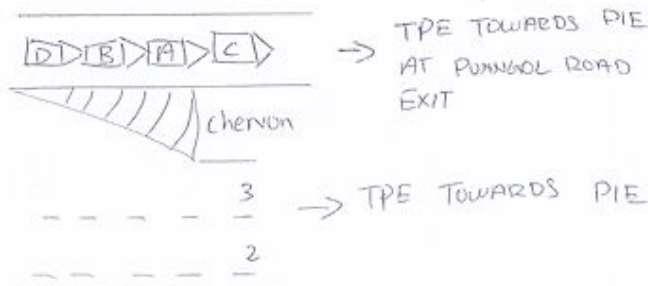 D B A C
TPE TOWARDS PIE
AT PUNNGOL ROAD
EXIT
Chervon
3
TPE TOWARDS PIE
2